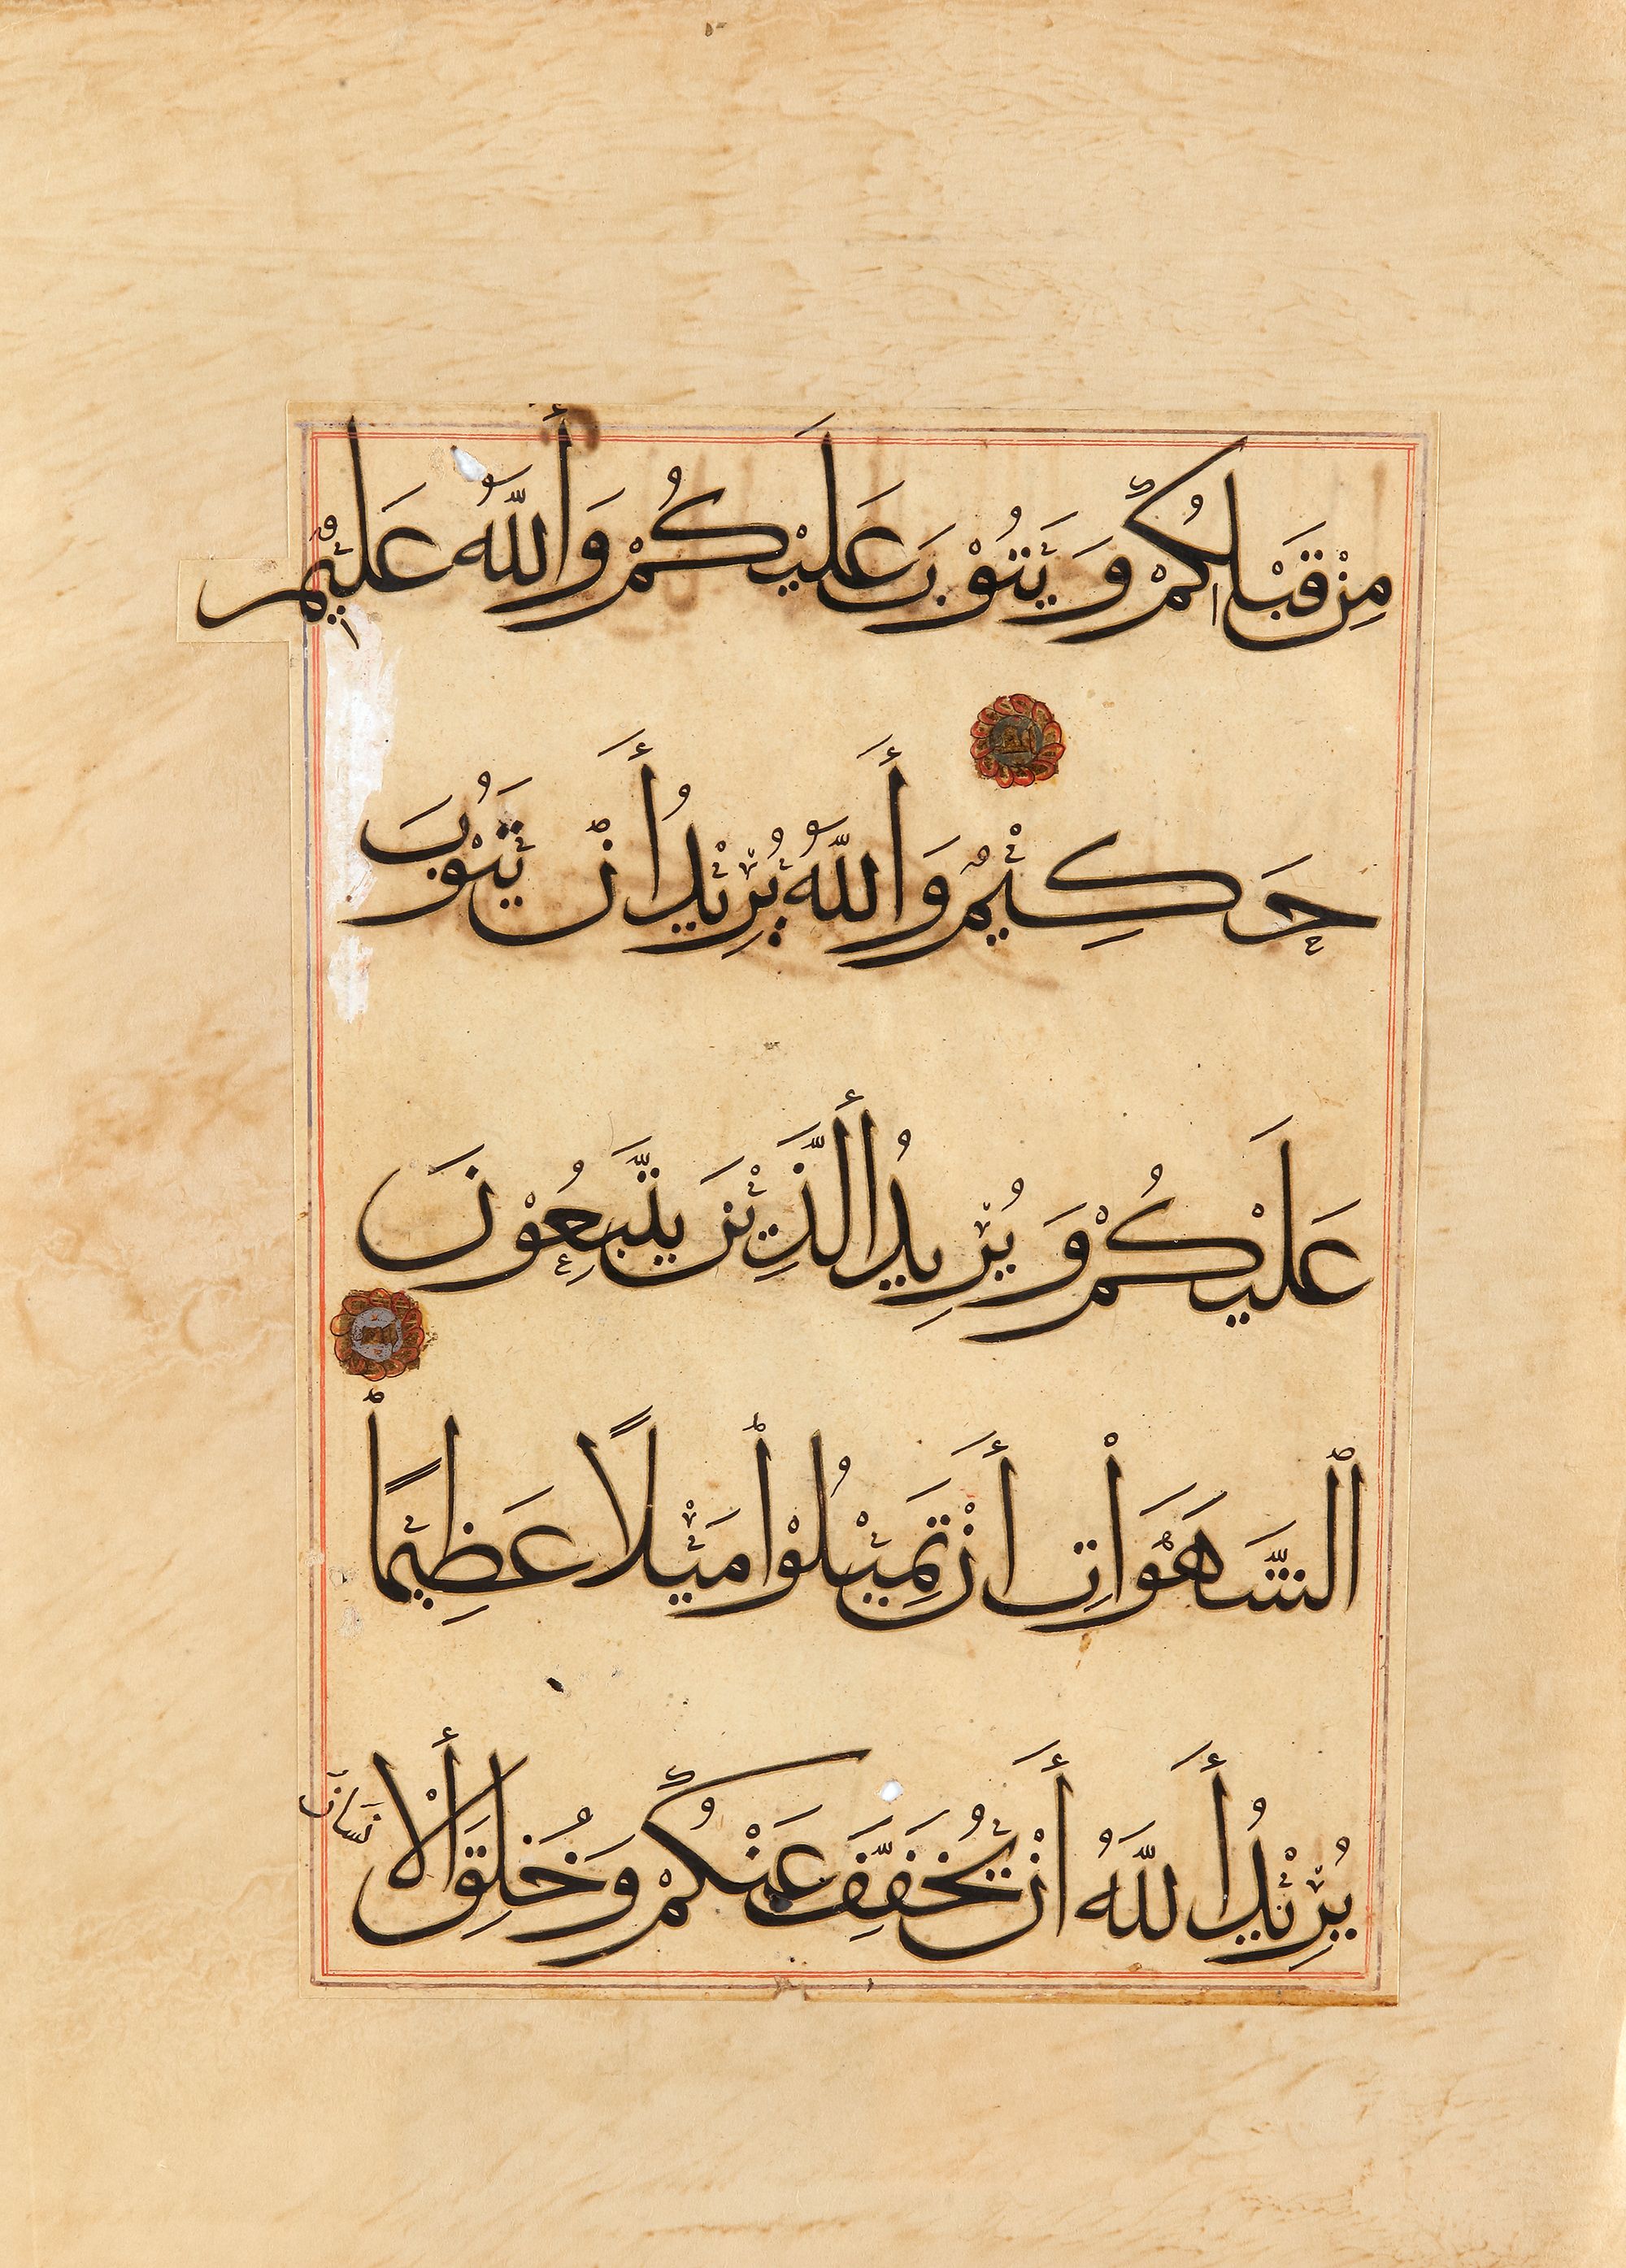 مِنْ قَبْلِكُمْ وَيَتُوْبَ عَلَيْكُمْ وَأَللّٰهُ عَلِيْمٌ
حَكِيْمٌ وَأَللّٰهُ يُرِيْدُ أَنْ يَتُوْبَ
عَلَيْكُمْ وَيُرِيدُ أَلَّذِيْنَ يَتَّبِعُوْنَ
ٱلشَّهَوَاتِ أَنْ تَمِيْلُوْا مَيْلًا عَظِيْمًا
يُرِيْدُ أَللّٰهُ أَنْ يُخَفِّفَ عَنْكُمْ وَخُلِقَ أَلْاِ
نْسَانُ